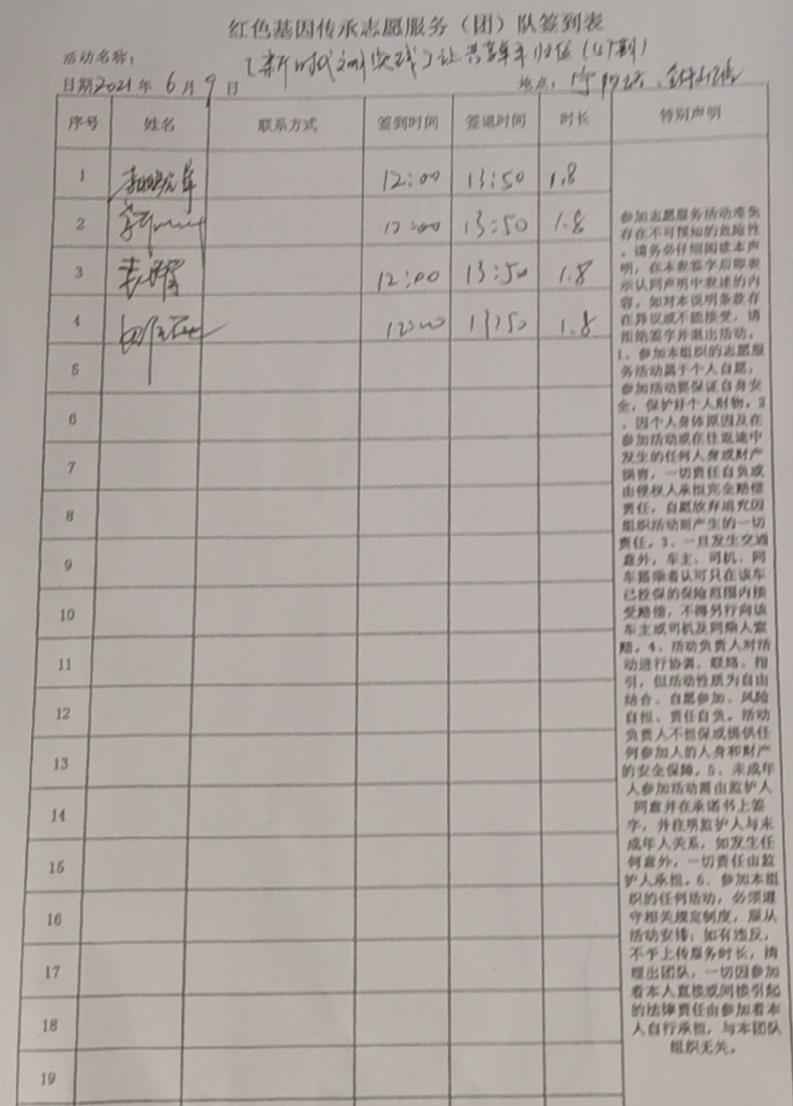 红色基因传承志愿服务（团）队签到表
活动名称：
【新时代文明实践】让共享单车归位（47期）
日期2021年6月9日 地点：
序号 姓名 联系方式 签到时间 签退时间 时长 特别声明
1 12:00 13:50 1.8
2 12:00 13:50 1.8
3 12:00 13:50 1.8
4 12:00 13:50 1.8
5
6
7
8
9
10
11
12
13
14
15
16
17
18
19
参加志愿服务活动难免
存在不可预知的危险性
，请务必仔细阅读本声
明，在本表签字后即表
示认同声明中表述的内
容。如对本说明条款存
在异议或不能接受，请
拒绝签字并退出活动。
1、参加本组织的志愿服
务活动属于个人自愿，
参加活动要保证自身安
全，保护好个人财物。2
、因个人身体原因及在
参加活动或在往返途中
发生的任何人身或财产
损害，一切责任自负或
由侵权人承担完全赔偿
责任，自愿放弃追究因
组织活动而产生的一切
责任。3、一旦发生交通
意外，车主、司机、同
车搭乘者认可只在该车
已投保的保险范围内接
受赔偿，不得另行向该
车主或司机及同乘人索
赔。4、活动负责人对活
动进行协调、联络、指
引，但活动性质为自由
结合、自愿参加、风险
自担、责任自负。活动
负责人不担保或提供任
何参加人的人身和财产
的安全保障。5、未成年
人参加活动需由监护人
同意并在承诺书上签
字，并注明监护人与未
成年人关系，如发生任
何意外，一切责任由监
护人承担。6、参加本组
织的任何活动，必须遵
守相关规定制度，服从
活动安排；如有违反，
不予上传服务时长，请
理出团队，一切因参加
者本人直接或间接引起
的法律责任由参加者本
人自行承担，与本团队
组织无关。